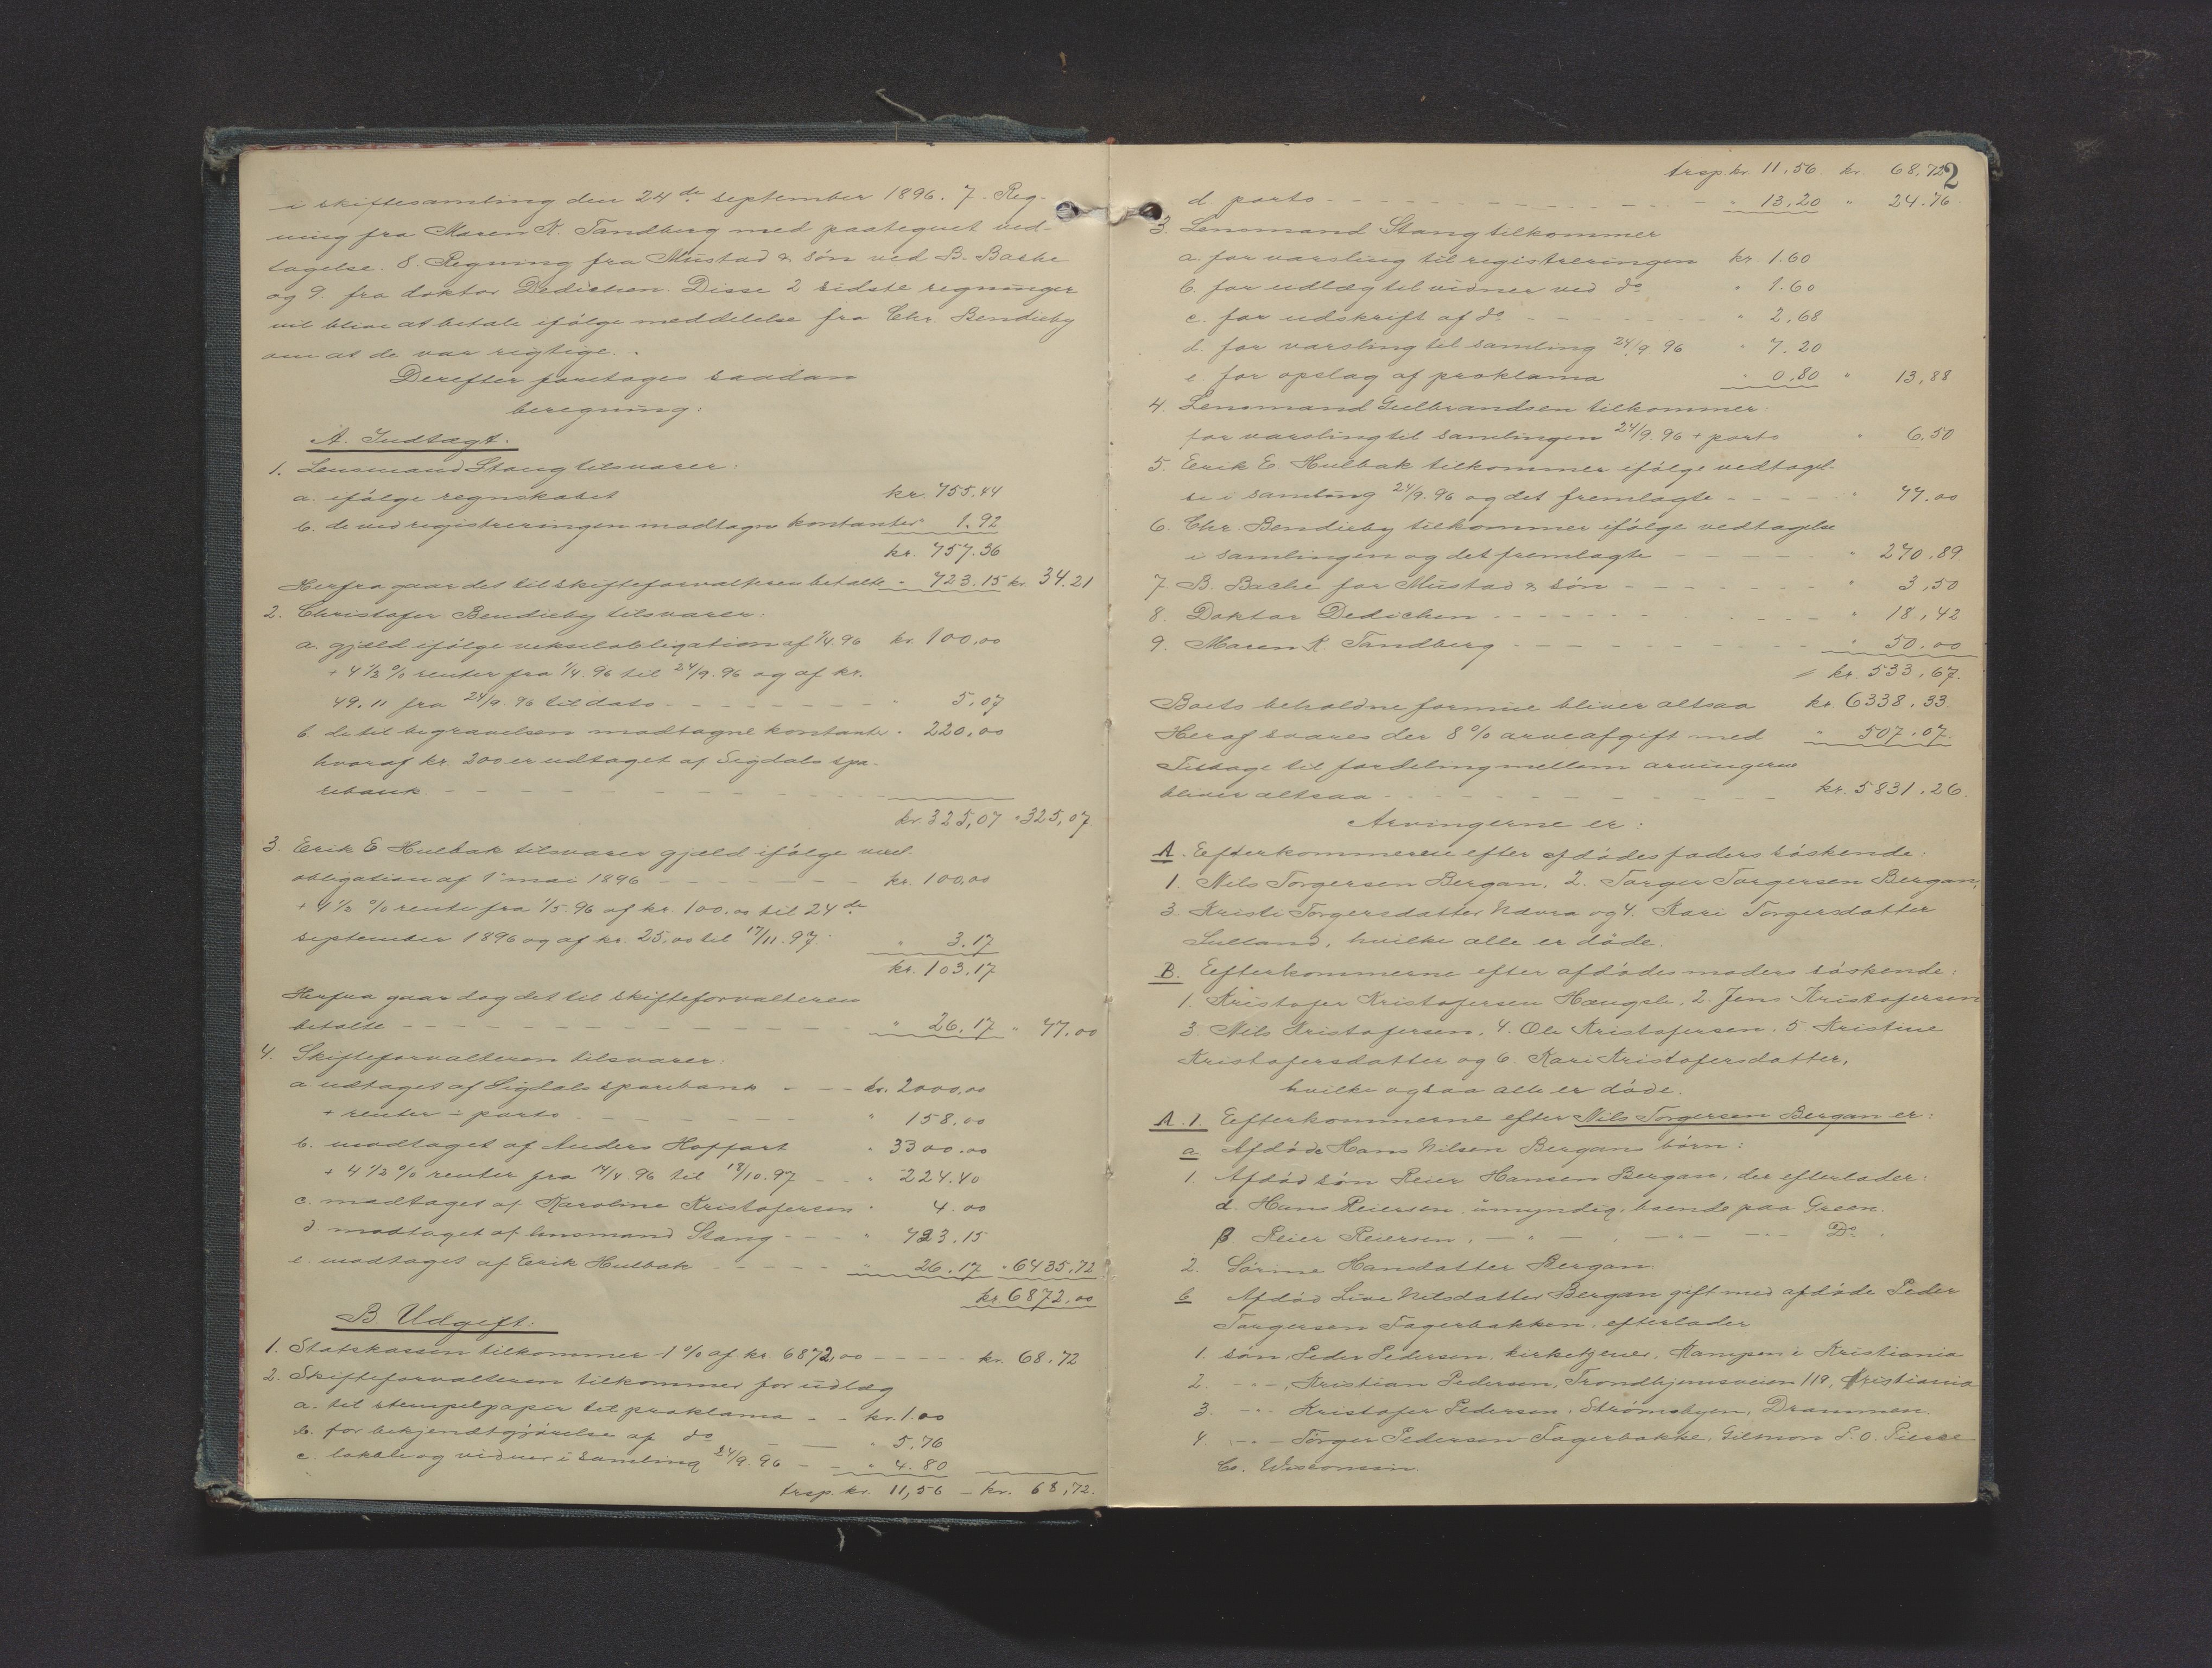 i skiftesamling den 24de september 1896. 7. Reg-
ning fra Maren K. Tandberg med paategnet ved-
tagelse. 8. Regning fra Mustad & søn ved B. Bache
og 9. fra doktor Dedichen. Disse 2 sidste regninger
vil blive at betale ifølge meddelelse fra Chr. Bendieby
om at de var rigtige.
Derefter foretages saadan
beregning:
A. Indtægt.
1. Lensmand Stang tilsvarer:
a. ifølge regnskabet kr. 755.44
b. de ved registreringen modtagne kontanter " 1.92
kr. 757.36
Herfra gaar det til skifteforvalteren betalte " 723.15 kr. 34.21
2. Christofer Bendieby tilsvarer:
a. gjæld ifølge vekselobligation af 1/4.96 kr. 100,00
+ 4 1/2 % renter fra 1/4.96 til 24/9.96 og af kr.
49.11 fra 24/9.96 til dato - - - " 5,07
b. de til begravelsen modtagne kontanter " 220,00
hvoraf kr. 200 er udtaget af Sigdals spa-
rebank - - -
kr. 325,07 " 325,07
3. Erik E Hulbak tilsvarer gjæld ifølge
obligation af 1 mai 1896 - - - kr. 100,00
+ 4 1/2 % rente fra 1/5.96 af kr. 100.00 til 24de
september 1896 og af kr. 25,00 til 17/11.97. " 3.17
kr. 103,17
Herfra gaar dog det til skifteforvalteren
betalte - - - " 26.17 " 77.00
4. Skifteforvalteren tilsvarer:
a udtaget af Sigdals sparebank - - - kr. 2000,00
+ renter ÷ porto - - - " 158.00
b. modtaget af Anders Hoffart " 3300.00
+ 4 1/2 % renter fra 14/4.96 til 18/10.97 - - " 224.40
c. modtaget af Karoline Kristofersen " 4.00
d. modtaget af lensmand Stang - - - " 723.15
e. modtaget af Erik Hulbak - - - " 26.17 " 6435,72
kr. 6872,00
B. Udgift:
1. Statskassen tilkommer 1 % af kr. 6872,00 - - - kr. 68.72
2. Skifteforvalteren tilkommer for udlæg
a. til stempelpapir til proklama - - kr. 1.00
b. for bekjendtgjørelse af do - - " 5,76
c. lokale og vidner i samling 24/9.96 - - " 4.80
trsp. kr. 11,56 - kr. 68,72.
2
trsp. kr. 11,56 kr. 68,72
d. porto - - - " 13,20 " 24.76
3. Lensmand Stang tilkommer
a. for varsling til registreringen kr 1.60
b. for udlæg til vidner ved do " 1.60
c. for udskrift af do - - - " 2,68
d. for varsling til samling 24/9.96 " 7.20
e. for opslag af proklama " 0,80 " 13,88
4. Lensmand Gulbrandsen tilkommer:
for varsling til samlingen 24/9.96 + porto " 6.50
5. Erik E. Hulbak tilkommer ifølge vedtagel-
se i samling 24/9.96 og det fremlagte - - - " 77.00
6. Chr. Bendieby tilkommer ifølge vedtagelse
i samlingen og det fremlagte - - - " 270.89
7. B. Bache for Mustad & søn - - - " 3,50
8. Doktor Dedichen - - - " 18,42
9. Maren K. Tandberg - - - " 50.00
kr. 533,67.
Boets beholdne formue bliver altsaa kr. 6338.33
Heraf svares der 8 % arveafgift med " 507.07.
Tilbage til fordeling mellem arvingerne
bliver altsaa - - - kr. 5831,26.
Arvingerne er:
A. Efterkommerne efter afdødes faders søskende:
1. Nils Torgersen Bergan, 2. Torger Torgersen Bergan,
3 Kristi Torgersdatter og 4. Kari Torgersdatter
hvilke alle er døde.
B. Efterkommerne efter afdødes moders søskende:
1. Kristofer Kristofersen Haugsle, 2. Jens Kristofersen
3. Nils Kristofersen, 4. Ole Kristofersen. 5 Kristine
Kristofersdatter og 6. Kari Kristofersdatter,
hvilke ogsaa alle er døde.
A. 1. Efterkommerne efter Nils Torgersen Bergan er:
a Afdøde Hans Nilsen Bergans børn:
1. Afdød søn Reier Hansen Bergan, der efterlader:
α. Hans Reiersen, umyndig, boende paa Green.
β Reier Reiersen, - " - , - " - - " - Do.
2. Sørine Hansdatter Bergan.
b Afdød Live Nilsdatter Bergan gift med afdøde Peder
Torgersen Fagerbakken, efterlader
1. søn, Peder Pedersen, kirketjener, Kampen i Kristiania
2. - " -, Kristian Pedersen, Trondhjemsveien 119, Kristiania
3. - " - Kristofer Pedersen, Strømsbyen, Drammen.
4. - " - Torger Pedersen Fagerbakke, Gilman P.O. Pierce
Co. Wisconsin.